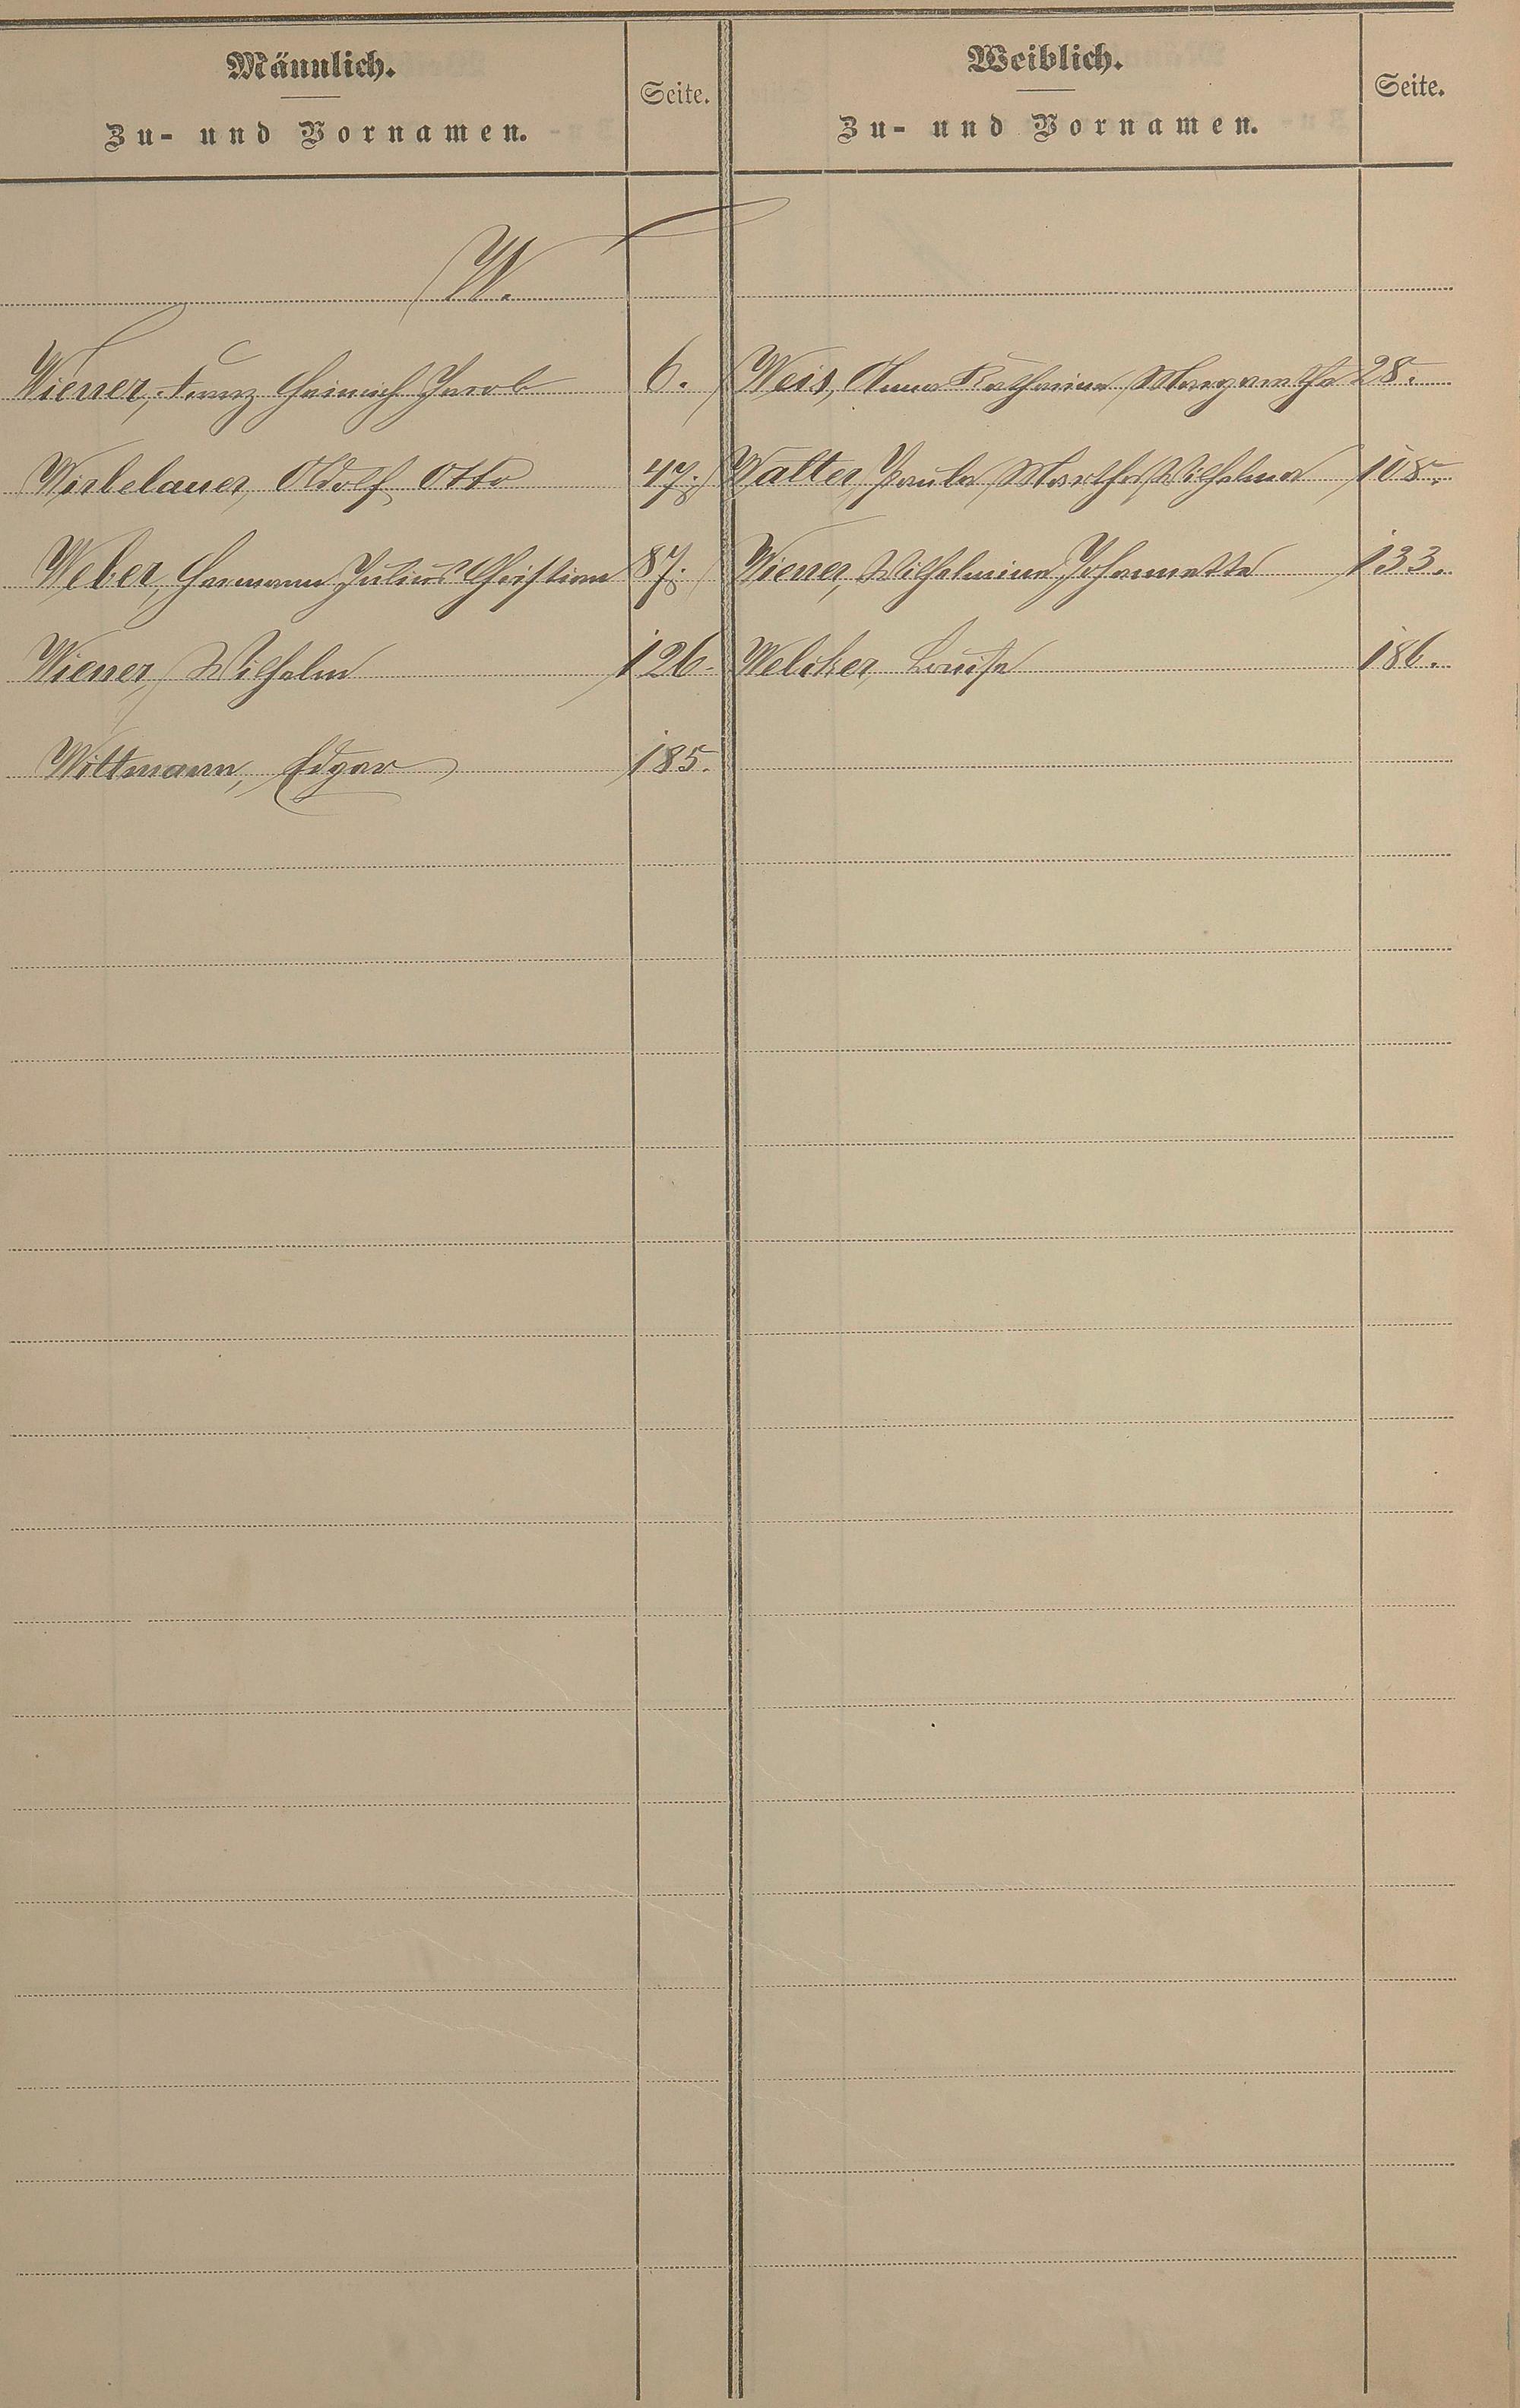 Männlich.
Zu- und Vornamen.
Seite.
Weiblich.
Zu- und Vornamen.
Seite.
W.
Wiener, Franz Heinrich Jacob 6.
Wirbelauer, Adolf Otto 47.
Weber, Hermann Julius Christian 87.
Wiener, Wilhelm 126.
Wittmann, Edgar 185.
Weis, Anna Katharina Margaretha 28.
Walter, Paula Martha Wilhelma 108.
Wiener, Wilhelmine Johannette 133.
Welcker, Louise 186.